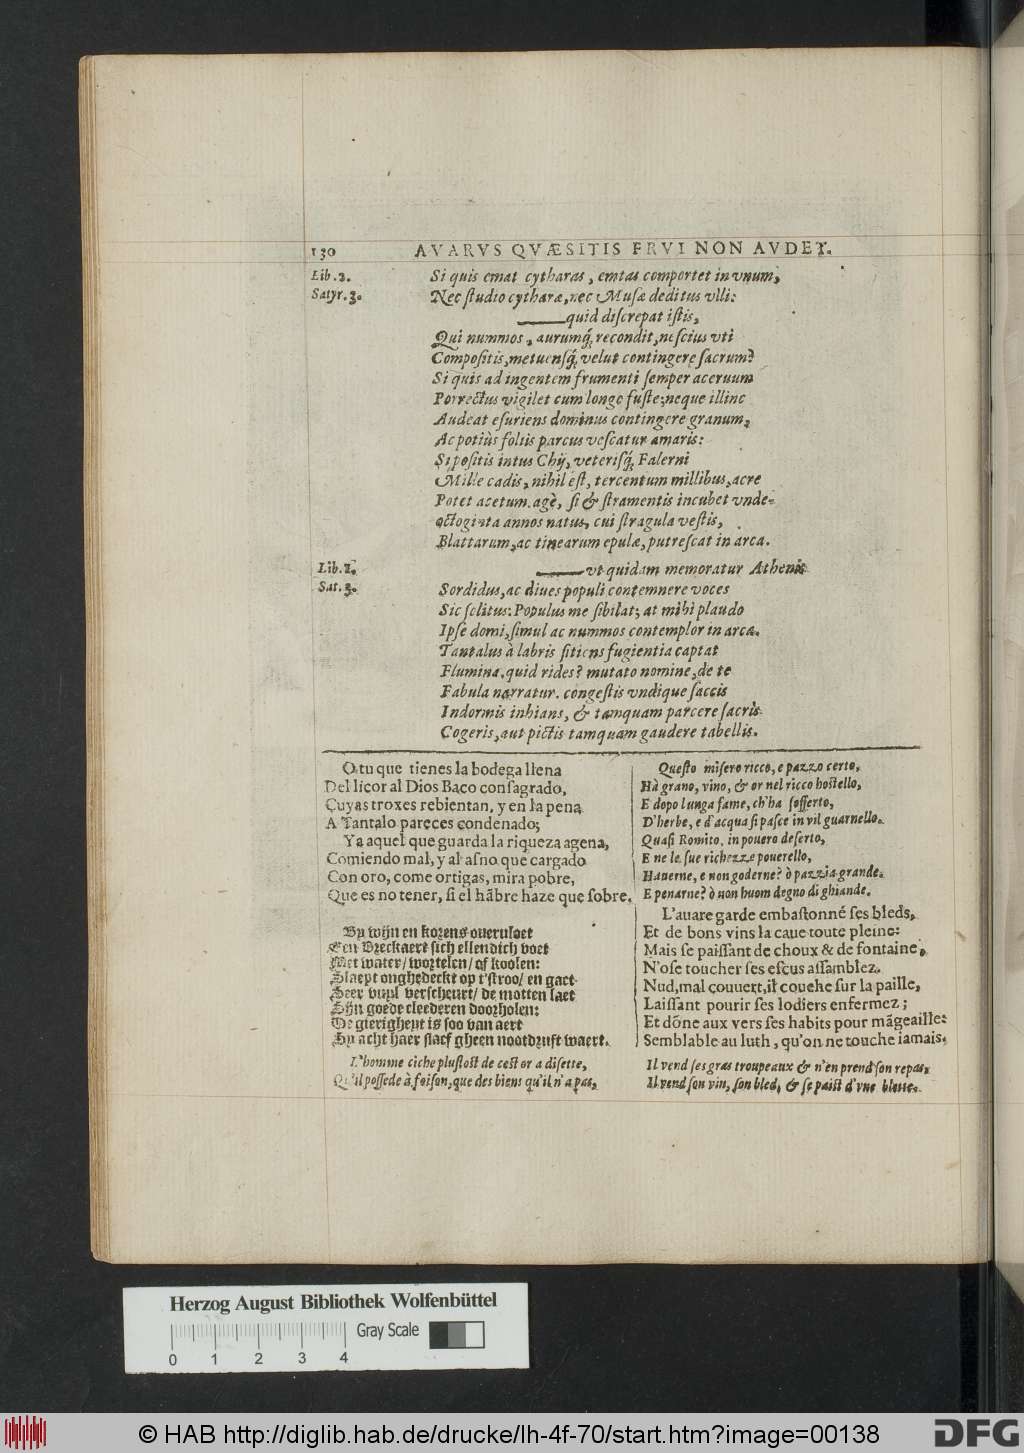 130 AVARVS QVÆSITIS FRVI NON AVDET.
Lib. 2. Si quis emat cytharas, emtas comportet in vnum,
Satyr. 3. Nec studio cytharæ, nec Musæ deditus vlli:
quid discrepat istis,
Qui nummos, aurumq́; recondit, nescius vti
Compositis, metuensq́; velut contingere sacrum?
Si quis ad ingentem frumenti semper aceruum
Porrectus vigilet cum longe fuste; neque illinc
Audeat esuriens dominus contingere granum,
Ac potiùs foliis parcus vescatur amaris:
Si positis intus Chij, veterisq́; Falerni
Mille cadis, nihil est, tercentum millibus, acre
Potet acetum. agè, si & stramentis incubet vnde-
octoginta annos natus, cui stragula vestis,
Blattarum, ac tinearum epulæ, putrescat in arca.
Lib. 1. vt quidam memoratur Athenis
Sat. 3. Sordidus, ac diues populi contemnere voces
Sic solitus: Populus me sibilat; at mihi plaudo
Ipse domi, simul ac nummos contemplor in arca.
Tantalus à labris sitiens fugientia captat
Flumina. quid rides? mutato nomine, de te
Fabula narratur. congestis vndique saccis
Indormis inhians, & tamquam parcere sacris
Cogeris, aut pictis tamquam gaudere tabellis.
O tu que tienes la bodega llena
Del licor al Dios Baco consagrado,
Cuyas troxes rebientan, y en la pena
A Tantalo pareces condenado;
Ya aquel que guarda la riqueza agena,
Comiendo mal, y al asno que cargado
Con oro, come ortigas, mira pobre,
Que es no tener, si el hãbre haze que sobre.
By wijn en korens overvloet
Een Vreckaert sich ellendich voet
Met water/ wortelen/ of koolen:
Slaept onghedeckt op t'stroo/ en gaet
Seer vuyl verscheurt/ de motten laet
Sijn goede cleederen doorholen:
De gierigheyt is soo van aert
Sy acht haer slaef gheen nootdruft waert.
L'homme ciche plustost de cest or a disette,
Qu'il possede à foison, que des biens qu'il n'a pas,
Questo misero ricco, e pazzo certo,
Hà grano, vino, & or nel ricco hostello,
E dopo lunga fame, ch'ha sofferto,
D'herbe, e d'acqua si pasce in vil guarnello.
Quasi Romito, in pouero deserto,
E ne le sue richezze pouerello,
Hauerne, e non goderne? ò pazzia grande.
E penarne? ò non huom degno di ghiande.
L'auare garde embastonné ses bleds,
Et de bons vins la caue toute pleine:
Mais se paissant de choux & de fontaine,
N'ose toucher ses escus assamblez.
Nud, mal couuert, il couche sur la paille,
Laissant pourir ses lodiers enfermez;
Et dõne aux vers ses habits pour mãgeaille:
Semblable au luth, qu'on ne touche iamais.
Il vend ses gras troupeaux & n'en prend son repas,
Il vend son vin, son bled, & se paist d'vne blette.
Herzog August Bibliothek Wolfenbüttel
Gray Scale
0 1 2 3 4
© HAB http://diglib.hab.de/drucke/lh-4f-70/start.htm?image=00138
DFG